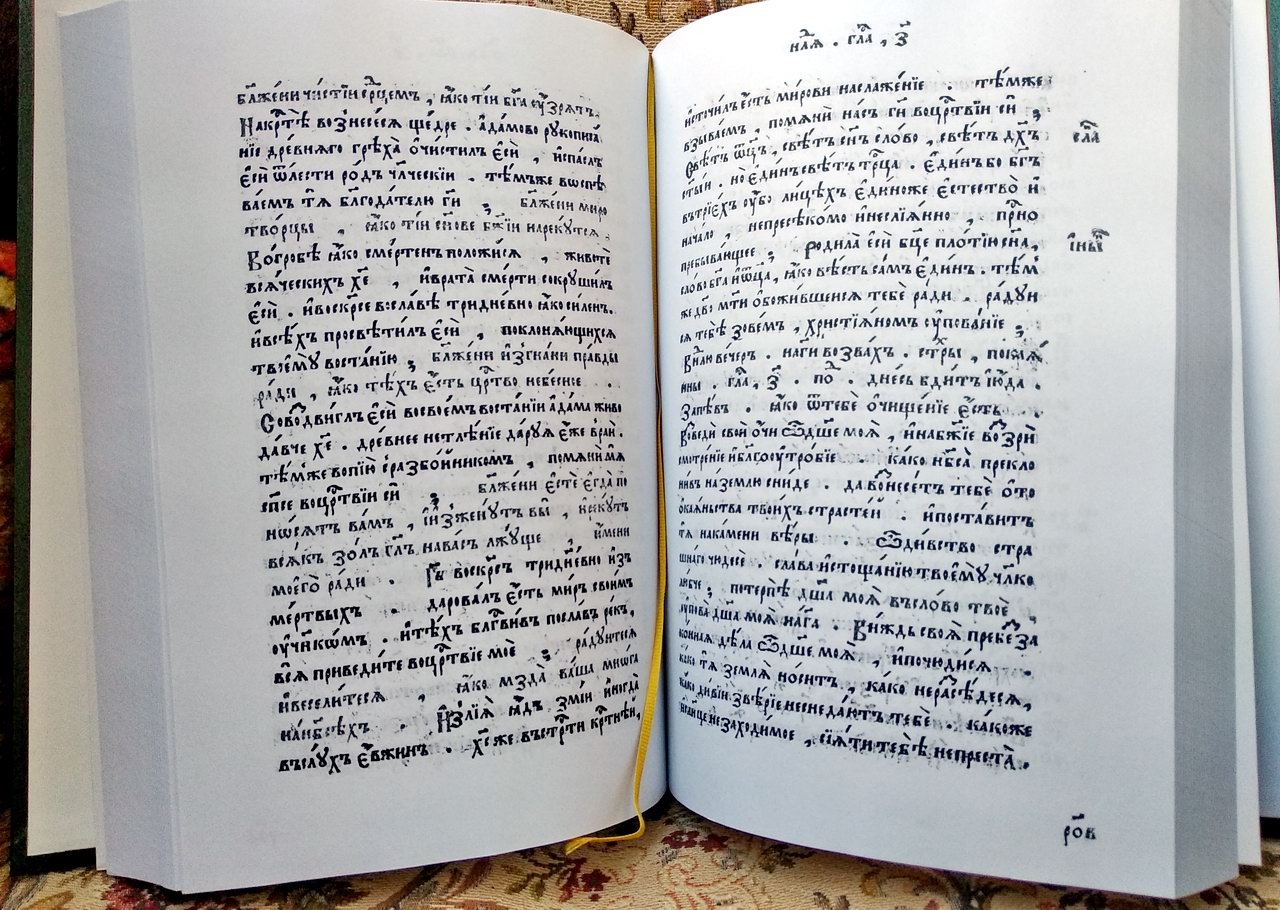 бл҃же́ни чи́стїи ср҃цемъ , ꙗ҆́ко ті́и бг҃а ᲂу҆́зрѧтъ.
На крⷭ҇тѣ̀ возне́сесѧ ще́дре . а҆да́мово рꙋкописа́
нїе дре́внѧго грѣха̀ ѻ҆чи́стилъ є҆сѝ , и҆спа́слъ
є҆сѝ ѿ ле́сти ро́дъ чл҃ческїи . тѣ́мъже воспѣ
ва́емъ тѧ̀ бл҃года́телю гд҇и ; бл҃же́ни миро
тво́рцы , ꙗ҆́ко ті́и сн҃ове бж҃їи нарекꙋ́тсѧ .
Во гро́бѣ ꙗ҆́ко сме́ртенъ положи́сѧ , животѐ
всѧ́ческихъ хе҇ , и҆ врата̀ сме́рти сокрꙋши́лъ
є҆сѝ . и҆ воскр҇се в сла́вѣ тридне́вно ꙗ҆́ко си́ленъ.
и҆ всѣ́хъ просвѣти́лъ є҆сѝ , поклонѧ́ющихсѧ
твоемꙋ̀ воста́нїю ; бл҃же́ни и҆згна́ни пра́вды
ра́ди , ꙗ҆́ко тѣ́хъ є҆́сть црⷭ҇тво небе́сное .
Совоздви́глъ є҆сѝ во свое́мъ воста́нїи а҆да́ма живо
да́вче хе҇ . дре́внее нетлѣ́нїе да́рꙋѧ є҆́же в ра́й .
тѣ́мже вопїю̀ с разбо́йникомъ , помѧни́ мѧ
сп҃се во црⷭ҇твїи сѝ ; бл҃же́ни є҆стѐ є҆гда̀ по
но́сѧтъ ва́мъ , и҆ и҆зженꙋ́тъ вы̀ , и҆ рекꙋ́тъ
всѧ́къ зо́лъ гл҃ъ на ва́съ лжꙋ́ще , и҆́мени
моего̀ ра́ди . Гд҇ь воскр҇съ тридне́вно и҆з
ме́ртвыхъ . дарова́лъ є҆́сть ми́ръ свои́мъ
ᲂу҆чн҃ко́мъ . и҆ тѣ́хъ бл҃гви́въ посла́въ ре́къ,
всѧ̀ приведи́те во црⷭ҇твїе моѐ ; ра́дꙋитесѧ
и҆ весели́тесѧ , ꙗ҆́ко мзда̀ ва́ша мно́га
на нб҃сѣ́хъ . И҆злїѧ̀ ꙗ҆́дъ змі́и и҆ногда̀
въ слꙋ́хъ є҆́вжинъ . хс҇ же въ стрⷭ҇ти крⷭ҇тнѣ́и,
наѧ . гла҃ , з҃
и҆сточи́лъ є҆́сть ми́рови наслажде́нїе . тѣ́мже
взыва́емъ , помѧнѝ на́съ гд҇и во црⷭ҇твїи сѝ ;
сла҇
Свѣ́тъ ѻ҆ц҃ъ , свѣ́тъ сн҃ъ сло́во , свѣ́тъ дх҃ъ
ст҃ы́и . но є҆ди́нъ свѣ́тъ трⷪ҇ца . є҆ди́нъ бо бг҃ъ
в трїе́хъ ᲂу҆́бо лицѣ́хъ є҆ди́но же є҆стество̀ и҆
нача́ло , непресѣко́мо и҆ неслїѧ́нно , прⷭ҇но
пребыва́ющее ;
и҆ны҃
роди́ла є҆сѝ бц҃е пло́тїю сн҃а,
сло́во бг҃а и҆ ѻ҆ц҃а, ꙗ҆́ко вѣ́сть са́мъ є҆ди́нъ . тѣ́м
же дв҃о мт҃и ѻ҆божи́вшеисѧ тебѐ ра́ди . ра́дꙋи
сѧ тебѣ̀ зове́мъ , христїѧ́номъ ᲂу҆пова́нїе ;
В нл҃ю вечеръ . на гд҇и возва́хъ . стр҃ы , покаѧ́
ны . гла҃ , з҃ . по҇ . дне́сь бди́тъ і҆ю́да .
Запѣ́въ . ꙗ҆́ко ѿ тебѐ ѻ҆чище́нїе є҆́сть .
Возведѝ свои́ ѻ҆́чи ѽ дш҃е моѧ̀ , и҆ на бж҃їе воззрѝ
смотре́нїе и҆ благоꙋтро́бїе . ка́ко нб҃са̀ прекло
ни́въ на зе́млю сни́де . да вознесе́тъ тебѐ ѿ
ѻ҆каѧ́ньства твои́хъ страсте́й . и҆ поста́витъ
тѧ̀ на ка́мени вѣ́ры . Ѽ ди́вьство стра
шнаго чю́десѐ . сла́ва и҆стоща́нїю твоемꙋ̀ чл҃ко
лю́бче ; потерпѣ̀ дш҃а моѧ̀ въ сло́во твоѐ
ᲂу҆пова̀ дш҃а моѧ̀ на гд҇а . Ви́ждь своѧ̀ пребез̾за
ко́ннаѧ дѣ́ла ѽ дш҃е моѧ̀ , и҆ почюди́сѧ .
ка́ко тѧ̀ землѧ̀ но́ситъ , ка́ко не разсѣ́десѧ,
ка́ко ди́вїи звѣ́рїе не снеда́ютъ тебѐ . ка́ко же
и҆ со́лнце незаходи́мое , сїѧ́ти тебѣ̀ не преста̀ .
ро҃в